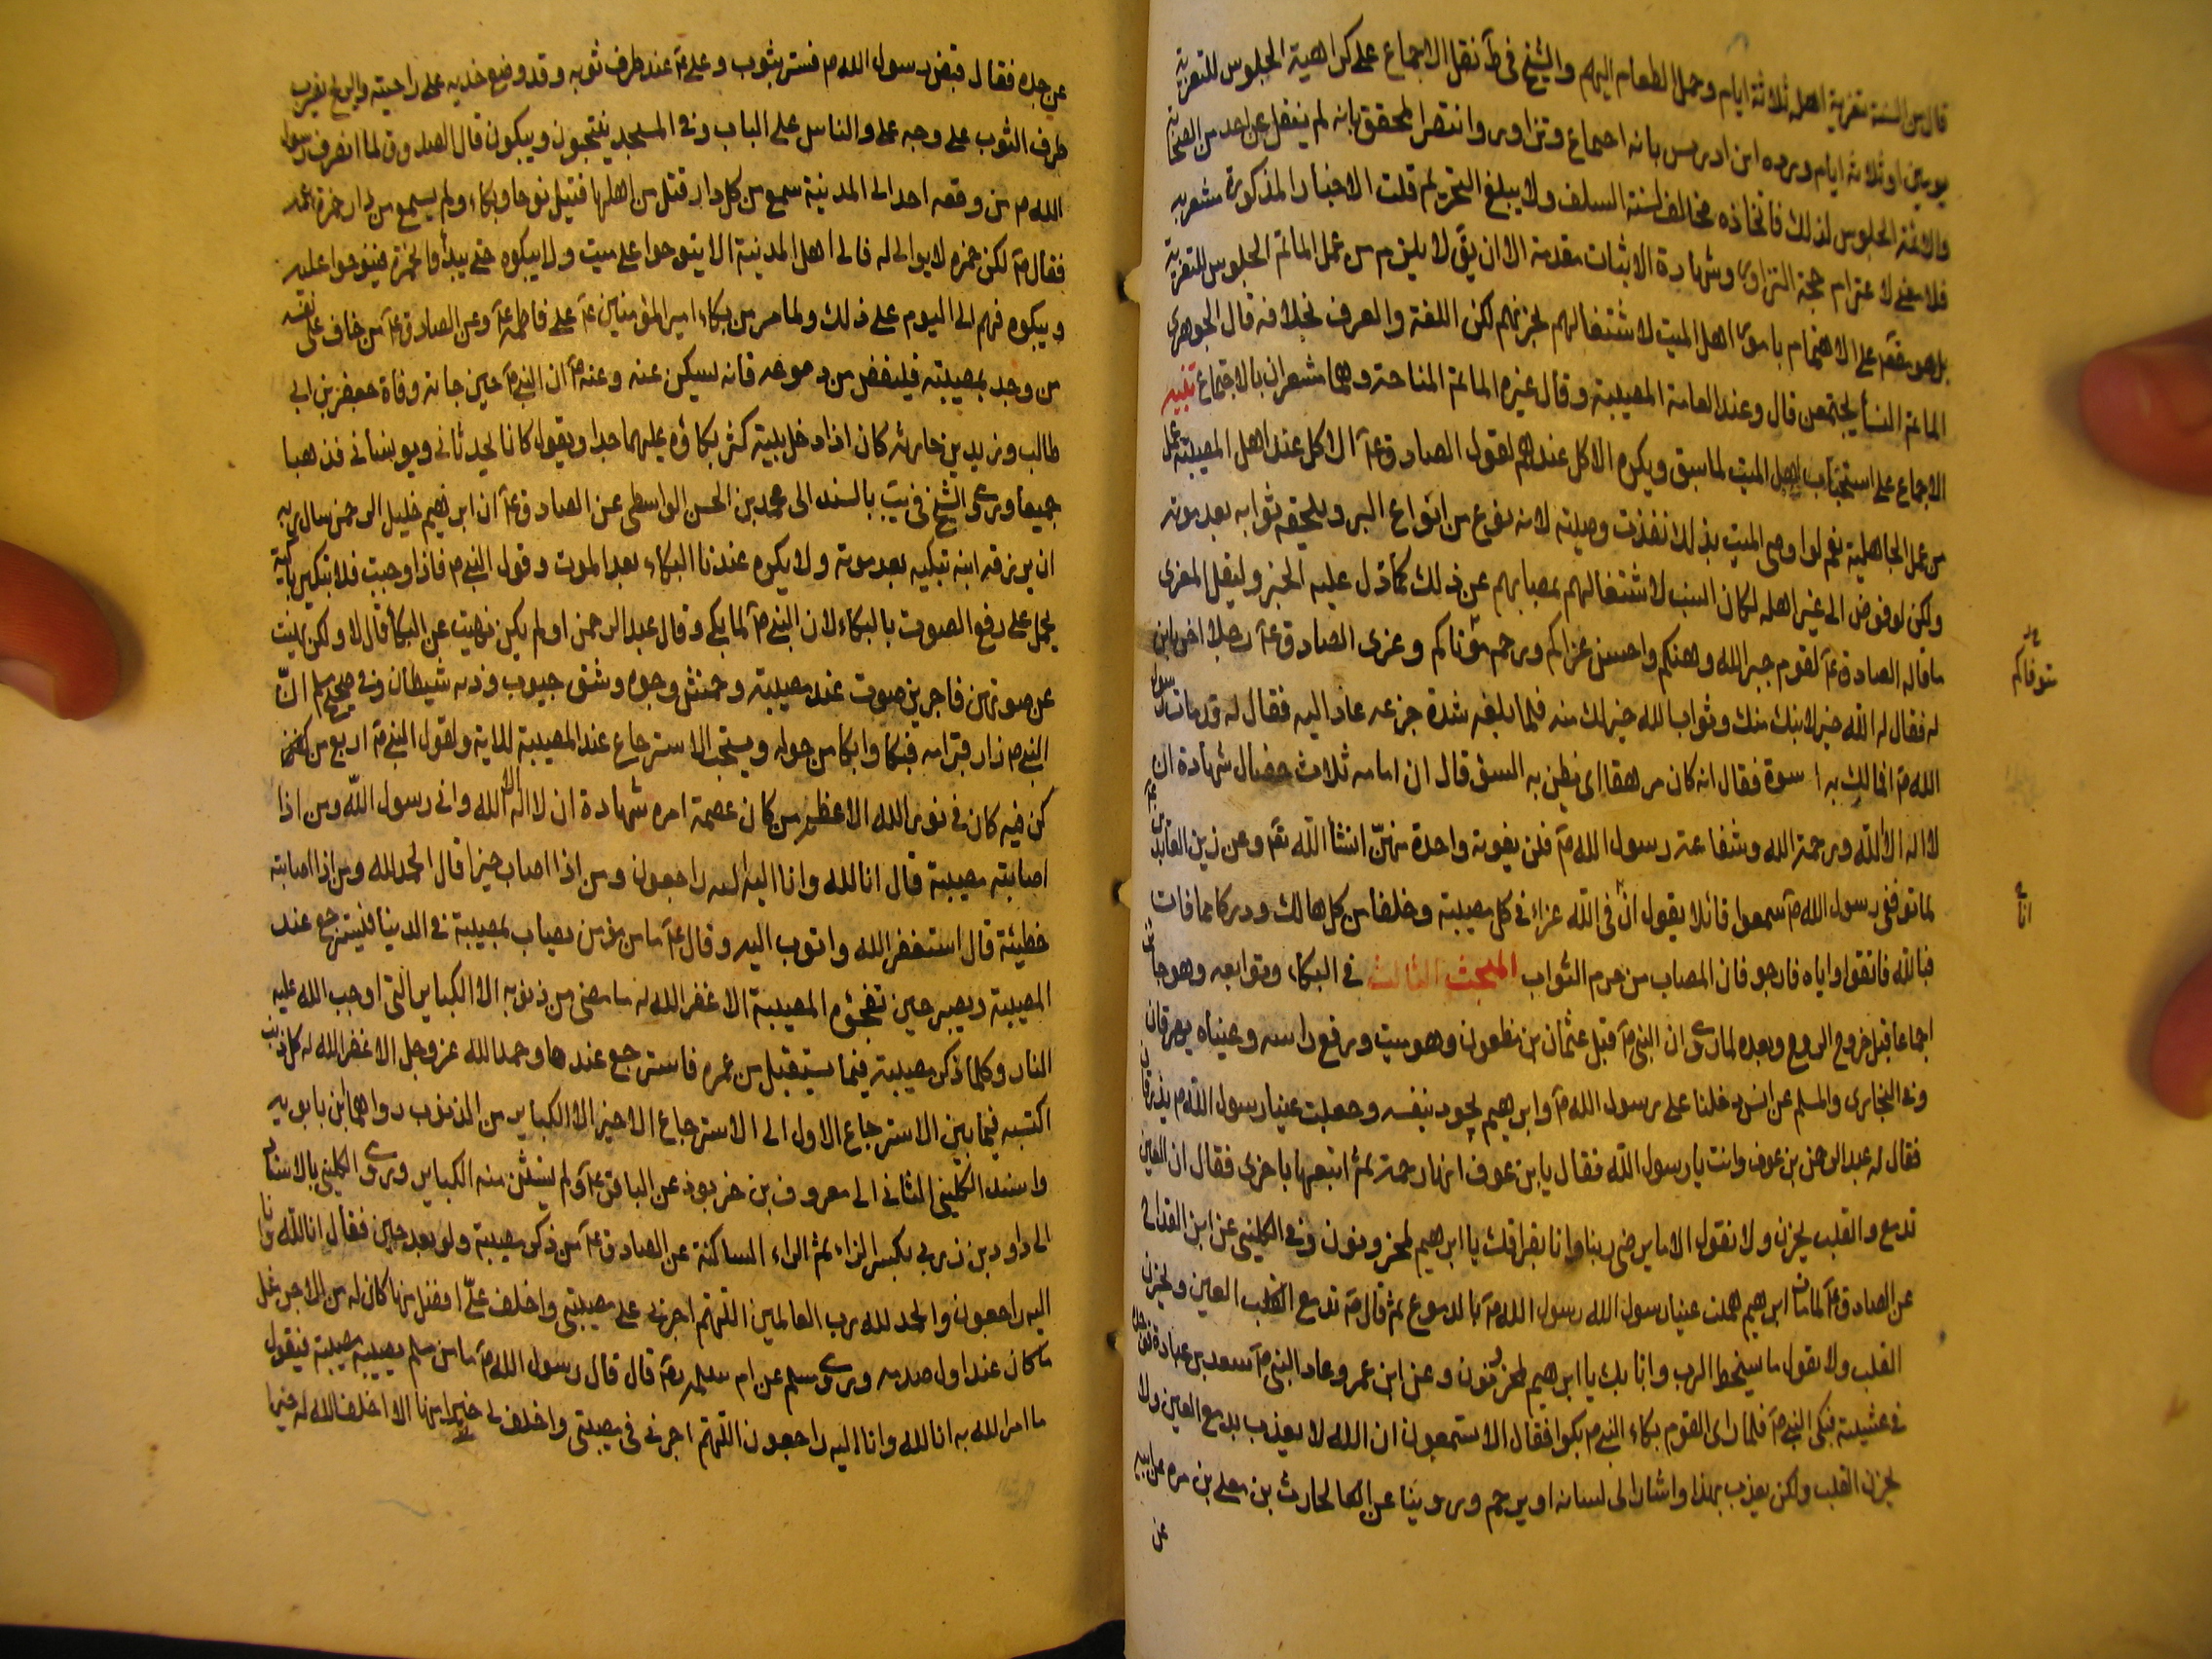 قال من السنة تعزية اهله ثلاثة ايام وحمل الطعام اليهم والشيخ في ط نقل الاجماع على كراهية الجلوس للتعزية
يومين او ثلاثة ايام ورده ابن ادريس بانه اجتماع وتزاور وانتصر المحقق بانه لم ينقل عن احد من الصحابة
والائمة الجلوس لذلك فاتخاذه مخالف لسنة السلف ولا يبلغ التحريم قلت الاخبار المذكورة مشعرة به
فلا معنى لاعتزام حجة التزاور وشهادة الاثبات مقدمة الا ان يق لا يلزم من عمل المأتم الجلوس للتعزية
بل هو مقصور على الاهتمام بامور اهل الميت لاشتغالهم بحزنهم لكن اللغة والعرف بخلافه قال الجوهري
المأتم النسأ يجتمعن قال وعند العامة المصيبة وقال غيره المأتم المناحة وهما مشعران بالاجتماع تنبيه
الاجماع على استحباب لاهل الميت لما سبق ويكره الاكل عندهم لقول الصادق عم الاكل عند اهل المصيبة من عمل
من عمل الجاهلية نعم لو اوصى الميت بذلك نفذت وصيته لانه نوع من انواع البر ويلحقه ثوابه بعد موته
ولكن لو فوض الى غير اهله لكان انسب لاشتغالهم بمصابهم عن ذلك كما دل عليه الخبر وليقل المعزي
ما قاله الصادق عم لقوم جبر الله وهنكم واحسن عزاكم ورحم متوفاكم وعزى الصادق عم رجلا اخر بابن
له فقال له الله خير لابنك منك وثواب الله خير لك منه فلما بلغه شدة جزعه عاد اليه فقال له قد مات رسول
الله ص افما لك به اسوة فقال انه كان مرهقا اي يظن به السوء قال ان امامه ثلاث خصال شهادة ان
لا اله الا الله ورحمة الله وشفاعة رسول الله ص فلن يفوته واحدة منهن انشأ الله تعم وعن زين العابدين عم
لما توفى رسول الله ص سمعوا قائلا يقول ان في الله عزاء في كل مصيبة وخلفا من كل هالك ودركا مما فات
فبالله فاتقوا واياه فارجوا فان المصاب من حرم الثواب المبحث الثالث في البكاء وتوابعه وهو جائز
اجماعا قبل خروج الروح وبعده لما روي ان النبي ص قبل عثمان بن مظعون وهو ميت ورفع راسه وعيناه يهرقان
وفي البخاري والمسلم عن انس دخلنا على رسول الله ص وابراهيم يجود بنفسه وجعلت عينا رسول الله ص يذرفان
فقال له عبد الرحمن بن عوف وانت يا رسول الله فقال يا بن عوف انها رحمة ثم اتبعها باخرى فقال ان العين
تدمع والقلب يحزن ولا نقول الا ما يرضى ربنا وانا بفراقك يا ابراهيم لمحزونون وفي الكليني عن ابن القداح
عن الصادق عم لما مات ابراهيم هملت عينا رسول الله رسول الله ص بالدموع ثم قال ص تدمع القلب العين ويحزن
القلب ولا نقول ما يسخط الرب وانا بك يا ابراهيم لمحزونون وعن ابن عمر وعاد النبي ص سعد بن عبادة فوجده
في غشيته فبكى النبي ص فلما راى القوم بكاء النبي ص بكوا فقال الا تستمعون ان الله لا يعذب بدمع العين ولا
بحزن القلب ولكن يعذب بهذا واشار الى لسانه او يرحم وروينا عن الحارث بن معلى بن مره عن ابيه
عن
متوفاكم
ان
عن جده فقال قبض رسول الله ص فستر بثوب وعلى عم عند طرف ثوبه وقد وضع خديه على راحتيه والريح يضرب
طرف الثوب على وجه على والناس على الباب وفي المسجد ينتحبون ويبكون قال الصدوق لما انصرف رسول
الله ص من وقعه احد الى المدينة سمع من كل دار قتل من اهلها قتيل نوحا وبكاء ولم يسمع من دار حمزة عمه
فقال ص لكن حمزه لا بواكي له فالى اهل المدينة الا ينوحوا على ميت ولا يبكوه حتى يبدأوا بحمزة فينوحوا عليه
ويبكوه فهم الى اليوم على ذلك ولما مر من بكاء امير المؤمنين عم على فاطمة عم وعن الصادق عم من خاف على نفسه
من وجد بمصيبته فليفض من دموعه فانه ليسكن عنه وعنه ص ان النبي ص حين جاءته وفاة جعفر بن ابي
طالب وزيد بن حارثه كان اذا دخل بيته كثر بكاؤه عليهما جدا ويقول كانا يحدثاني ويونساني فذهبا
جميعا وروى الشيخ في يب بالسند الى محمد بن الحسن الواسطي عن الصادق عم ان ابراهيم خليل الرحمن سال ربه
ان يرزقه ابنه تبكيه بعد موته ولا يكره عندنا البكاء بعد الموت وقول النبي ص فاذا وجبت فلا تبكين باكية
يحمل على رفع الصوت بالبكاء لان النبي ص لما بكى وقال عبد الرحمن اولم يكن نهيت عن البكأ قال لا ولكن نهيت
عن صوتين فاجرين صوت عند مصيبة وخمش وجوه وشق جيوب ورنه شيطان وفي صحيح مسلم ان
النبي ص زار قبر امه فبكا وابكا من حوله ويستحب الاسترجاع عند المصيبة للاية ولقول النبي ص اربع من
كن فيه كان في نور الله الاعظم من كان عصمة امره شهادة ان لا اله الا الله واني رسول الله ومن اذا
اصابته مصيبة قال انا لله وانا اليه راجعون ومن اذا اصاب خيرا قال الحمد لله ومن اذا اصابته
خطيئة قال استغفر الله واتوب اليه وقال عم ما من مؤمن يصاب بمصيبة في الدنيا فيسترجع عند
المصيبة ويصبر حين تفجؤه المصيبة الا غفر الله له ما مضى من ذنوبه الا الكباير التي اوجب الله عليه
النار وكلما ذكر مصيبة فيما يستقبل من عمره فاسترجع عندها وحمد الله عز وجل الا غفر الله له كل ذنب
اكتسبه فيما بين الاسترجاع الاول الى الاسترجاع الاخير الا الكباير من الذنوب رواهما ابن بابويه
واسند الكليني الثاني الى معروف بن خربوذ عن الباقر عم ولم يستثن منه الكباير وروى الكليني بالاسناد
الى داود بن زربي بكسر الزاء ثم الراء الساكنة عن الصادق عم من ذكر مصيبة ولو بعد حين فقال انا لله وانا
اليه راجعون والحمد لله رب العالمين اللهم اجرني على مصيبتي واخلف على افضل منها كان له من الاجر مثل
ما كان عند اول صدمه وروى مسلم عن ام سلمه قال قال رسول الله ص ما من مسلم يصيبه مصيبة فيقول
ما امر الله به انا لله وانا اليه راجعون اللهم اجرني في مصيبتي واخلف لي خيرا منها الا اخلف الله له خيرا